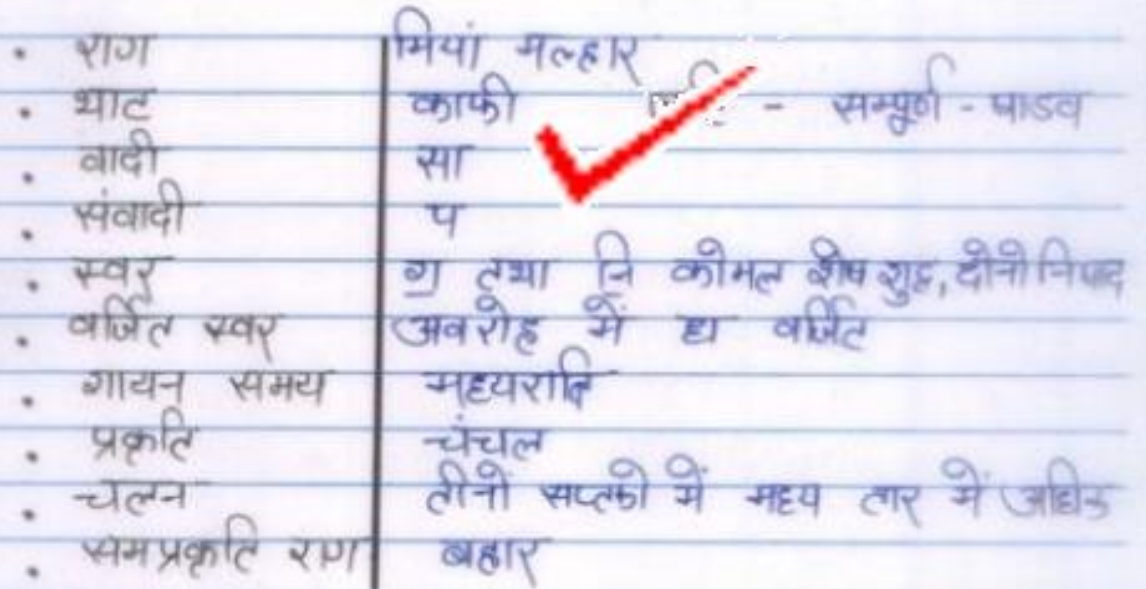 • राग मियां मल्हार
• थाट काफी - सम्पूर्ण - षाडव
• वादी सा
• संवादी प
• स्वर ग॒ तथा नि कोमल शेष शुद्ध, दोनो निषाद
• वर्जित स्वर अवरोह में ध वर्जित
• गायन समय मध्यरात्रि
• प्रकृति चंचल
• चलन तीनो सप्तको में मध्य तार में अधिक
• समप्रकृति राग बहार